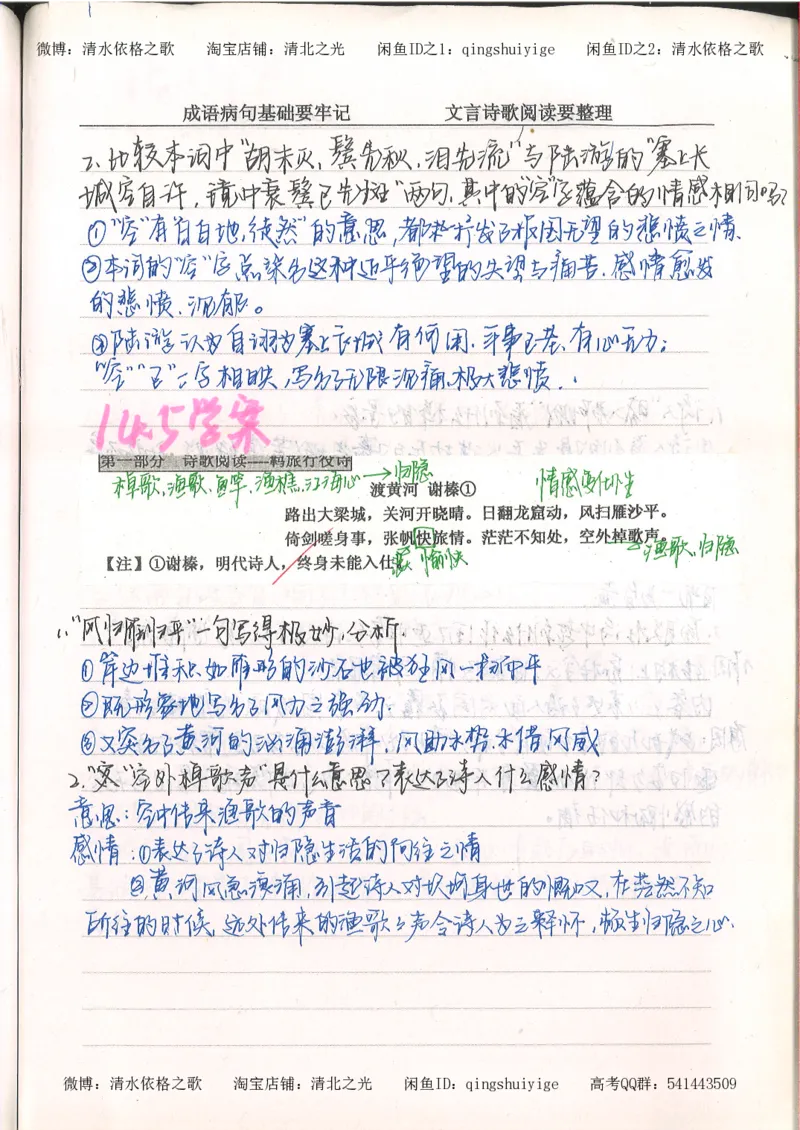 微博：清水依格之歌 淘宝店铺：清北之光 闲鱼ID之1：qingshuiyige 闲鱼ID之2：清水依格之歌
成语病句基础要牢记 文言诗歌阅读要整理
2、比较本词中"胡未灭，鬓先秋，泪空流"与陆游的"塞上长
城空自许，镜中衰鬓已先斑"两句，其中的"空"字蕴含的情感相同吗？
①"空"有"白白地，徒然"的意思，都抒发了极度无望的悲愤之情.
②本词的"空"字点染出这种近乎绝望的失望与痛苦.感情愈发
的悲愤、沉郁。
③陆游认为自诩为塞上长城有何用.年事已老、有心无力；
"空""已"二字相映，写出了无限沉痛、极大悲愤.
145学案
第一部分 诗歌阅读----羁旅行役诗
棹歌、渔歌、鱼竿、渔樵、江海心→归隐
渡黄河 谢榛① 情感 仕坐
路出大梁城，关河开晓晴。日翻龙窟动，风扫雁沙平。
倚剑嗟身事，张帆快旅情。茫茫不知处，空外棹歌声。
渔歌、归隐
【注】①谢榛，明代诗人，终身未能入仕
愉快
1、"风扫雁沙平"一句写得极妙，分析.
①岸边堆积如雁形的沙石也被狂风一扫而平
②既形象地写出了风力之强劲.
③又突出了黄河的汹涌澎湃，风助水势.水借风威
2."空外棹歌声"是什么意思？表达了诗人什么感情？
意思：空中传来渔歌的声音
感情：①表达了诗人对归隐生活的向往之情
②黄河风急浪涌，引起诗人对坎坷身世的慨叹，在茫然不知
所往的时候，远处传来的渔歌之声令诗人为之释怀，顿生归隐之心.
微博：清水依格之歌 淘宝店铺：清北之光 闲鱼ID：qingshuiyige 高考QQ群：541443509